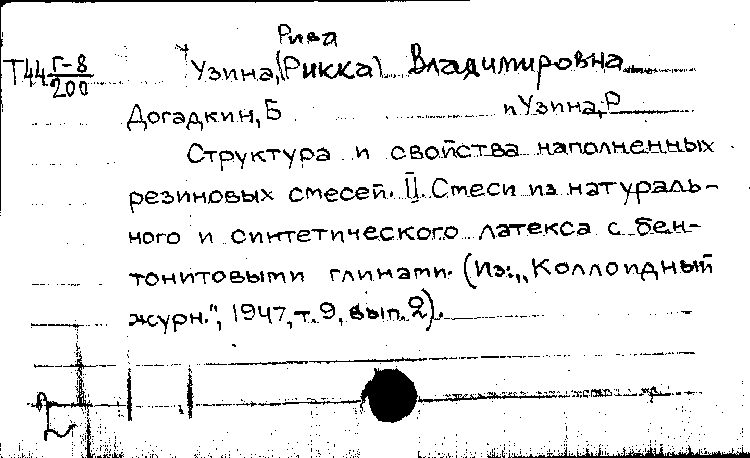 Рива
Т44 Г-8/200 Узина, (Рикка) Владимировна
Догадкин, Б и Узина, Р
Структура и свойства наполненных
резиновых смесей. II. Смеси из натураль-
ного и синтетического латекса с бен-
тонитовыми глинами. (Из: „Коллоидный
журн.", 1947, т. 9, вып. 2).